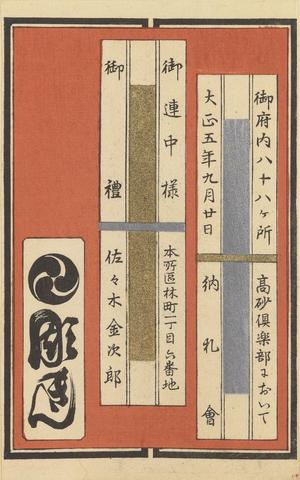 御府内八十八ヶ所
高砂倶楽部において
大正五年九月廿日
納札會
御連中様
本所區林町一丁目六番地
御禮
佐々木金次郎